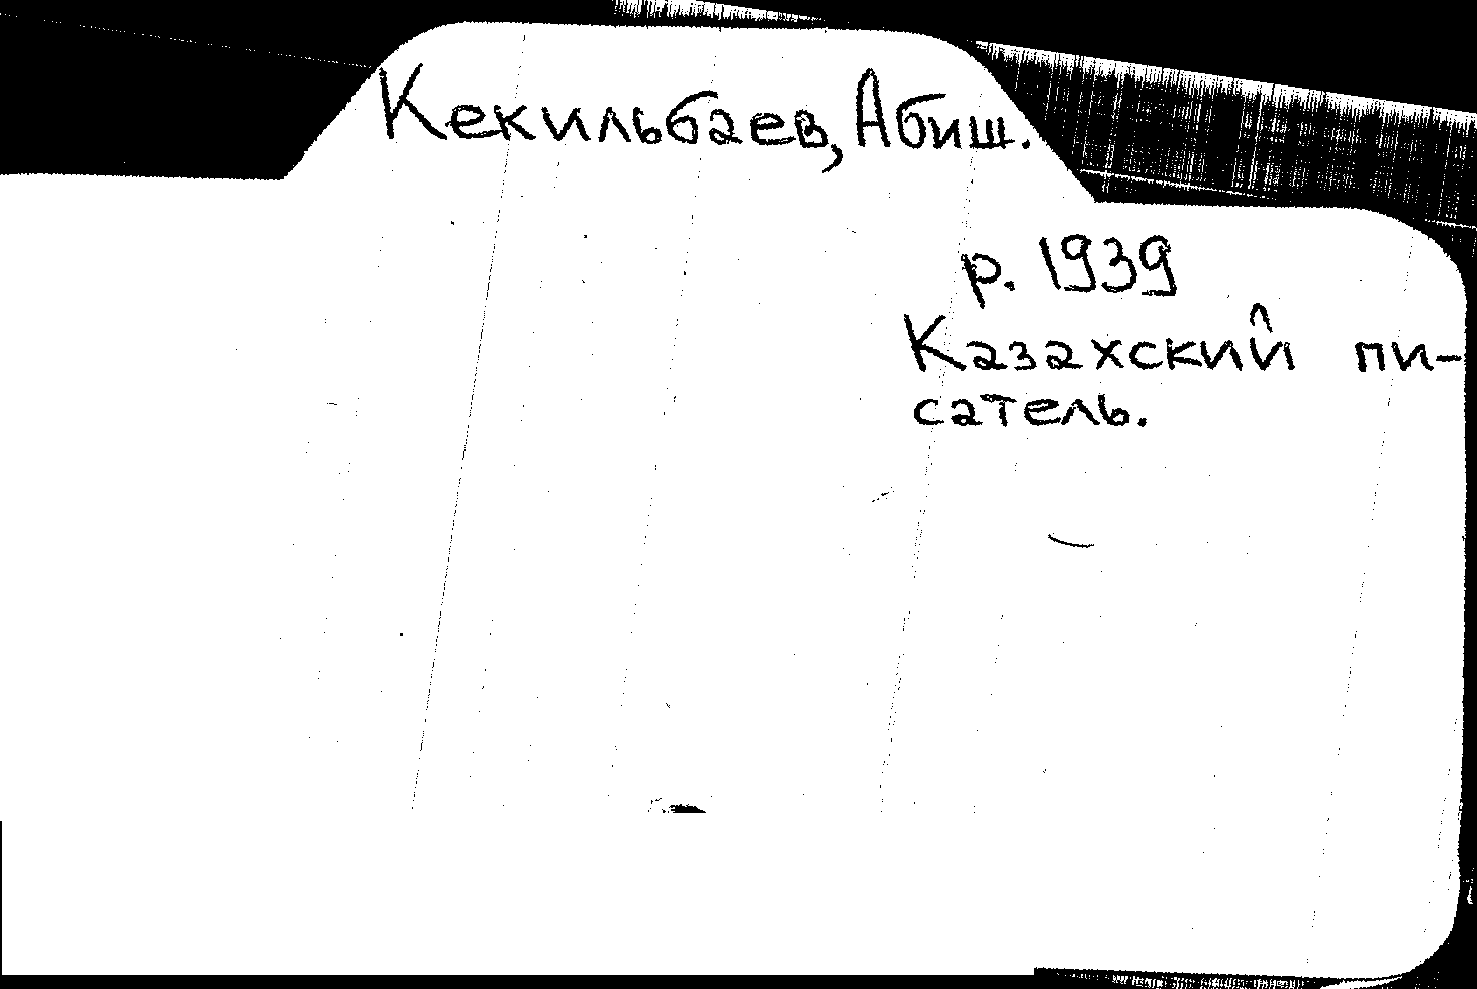 Кекильбаев, Абиш.
р. 1939
Казахский пи-
сатель.